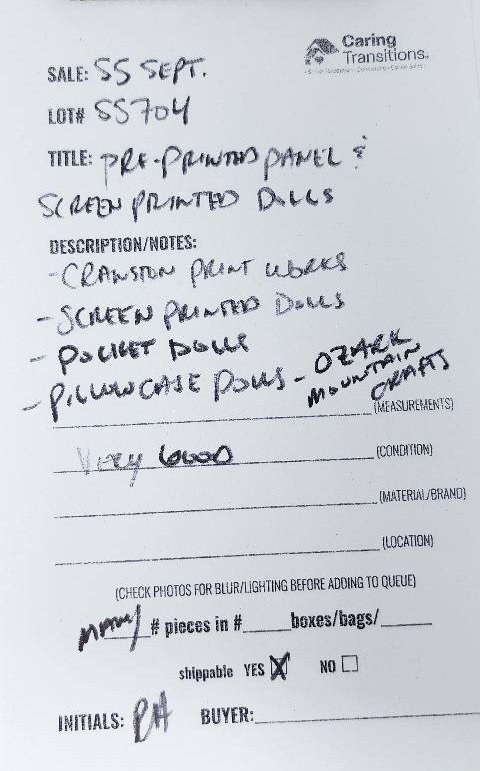 Caring
Transitions.
SALE: SS SEPT.
LOT# SS704
TITLE: PRE-PRINTED PANEL &
SCREEN PRINTED DOLLS
DESCRIPTION/NOTES:
- CRANSTON PRINT WORKS
- SCREEN PRINTED DOLLS
- POCKET DOLLS
- PILLOWCASE DOLLS - OZARK
MOUNTAIN
CRAFTS
(MEASUREMENTS)
Very Good (CONDITION)
(MATERIAL/BRAND)
(LOCATION)
(CHECK PHOTOS FOR BLUR/LIGHTING BEFORE ADDING TO QUEUE)
many # pieces in #______boxes/bags/______
shippable YES ☒ NO ☐
INITIALS: RH BUYER: